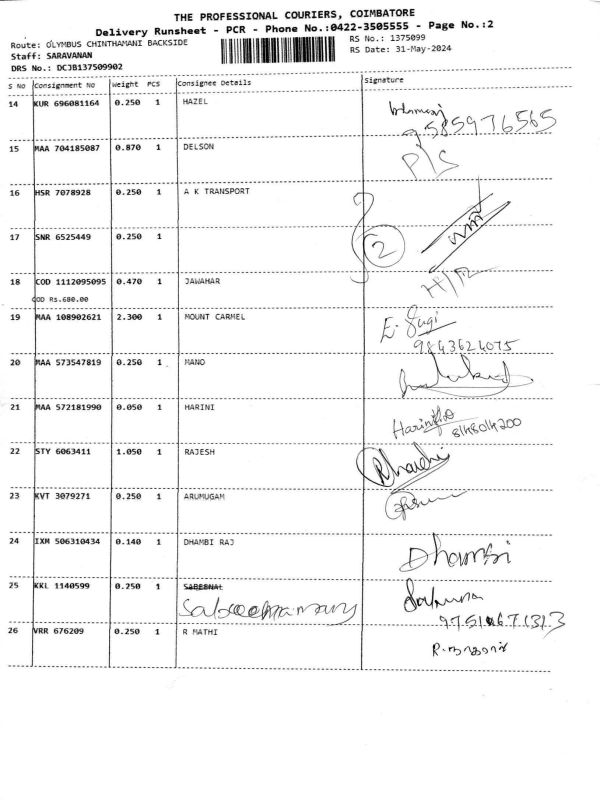 THE PROFESSIONAL COURIERS, COIMBATORE
Delivery Runsheet - PCR - Phone No.:0422-3505555 - Page No.:2
Route: OLYMBUS CHINTHAMANI BACKSIDE
RS No.: 1375099
Staff: SARAVANAN
RS Date: 31-May-2024
DRS No.: DCJB137509902
S No Consignment No Weight PCS Consignee Details Signature
14 KUR 696081164 0.250 1 HAZEL
9585976565
15 MAA 704185087 0.870 1 DELSON P/S
16 HSR 7078928 0.250 1 A K TRANSPORT
2
17 SNR 6525449 0.250 1
18 COD 1112095095 0.470 1 JAWAHAR H/R
COD RS.680.00
19 MAA 108902621 2.300 1 MOUNT CARMEL E. Sugi
9843624075
20 MAA 573547819 0.250 1 MANO
21 MAA 572181990 0.050 1 HARINI
8148014200
22 STY 6063411 1.050 1 RAJESH
23 KVT 3079271 0.250 1 ARUMUGAM
24 IXM 506310434 0.140 1 DHAMBI RAJ Dhambi
25 KKL 1140599 0.250 1 SABEENAL
26 VRR 676209 0.250 1 R MATHI